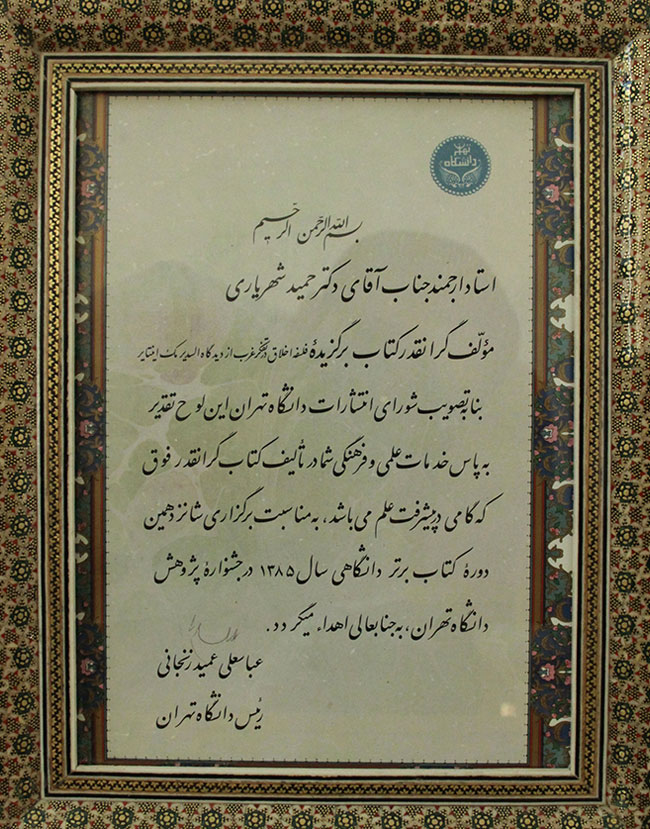 دانشگاه تهران
بسم الله الرحمن الرحیم
استاد ارجمند جناب آقای دکتر حمید شهریاری
مؤلّف گرانقدر کتاب برگزیدهٔ فلسفه اخلاق در تفکر غرب از دیدگاه السدیر مک اینتایر
بنا بتصویب شورای انتشارات دانشگاه تهران این لوح تقدیر
به پاس خدمات علمی و فرهنگی شما در تألیف کتاب گرانقدر فوق
که گامی در پیشرفت علم می باشد، به مناسبت برگزاری شانزدهمین
دورهٔ کتاب برتر دانشگاهی سال ۱۳۸۵ در جشنوارهٔ پژوهش
دانشگاه تهران، به جنابعالی اهداء میگردد.
عباسعلی عمید زنجانی
رئیس دانشگاه تهران